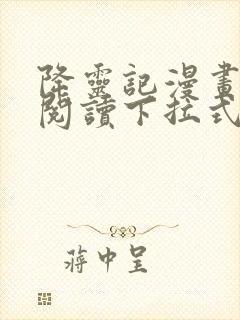 降靈記漫畫
閱讀下拉式
蔣中呈